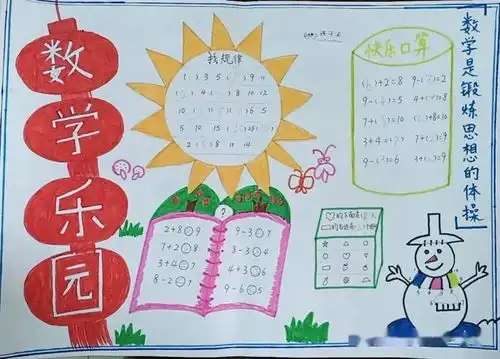 数学乐园
找规律
( ) 3 5 ( ) 9 11
( ) 4 ( ) 8 10 12
5 10 15 ( ) 25
2 ( ) 8 ( ) 14
快乐口算
( )+2=8 9-( )=2
9-( )=5 4+( )=8
7+( )=10 ( )+8=10
3+4=( ) 7+( )=9
9-( )=6 3+( )=9
数学是锻炼思想的体操
?
2+8○9 9-3○7
7+2○8 8-3○4
3+4○7 4+3○6
8-2○7 9-6○5